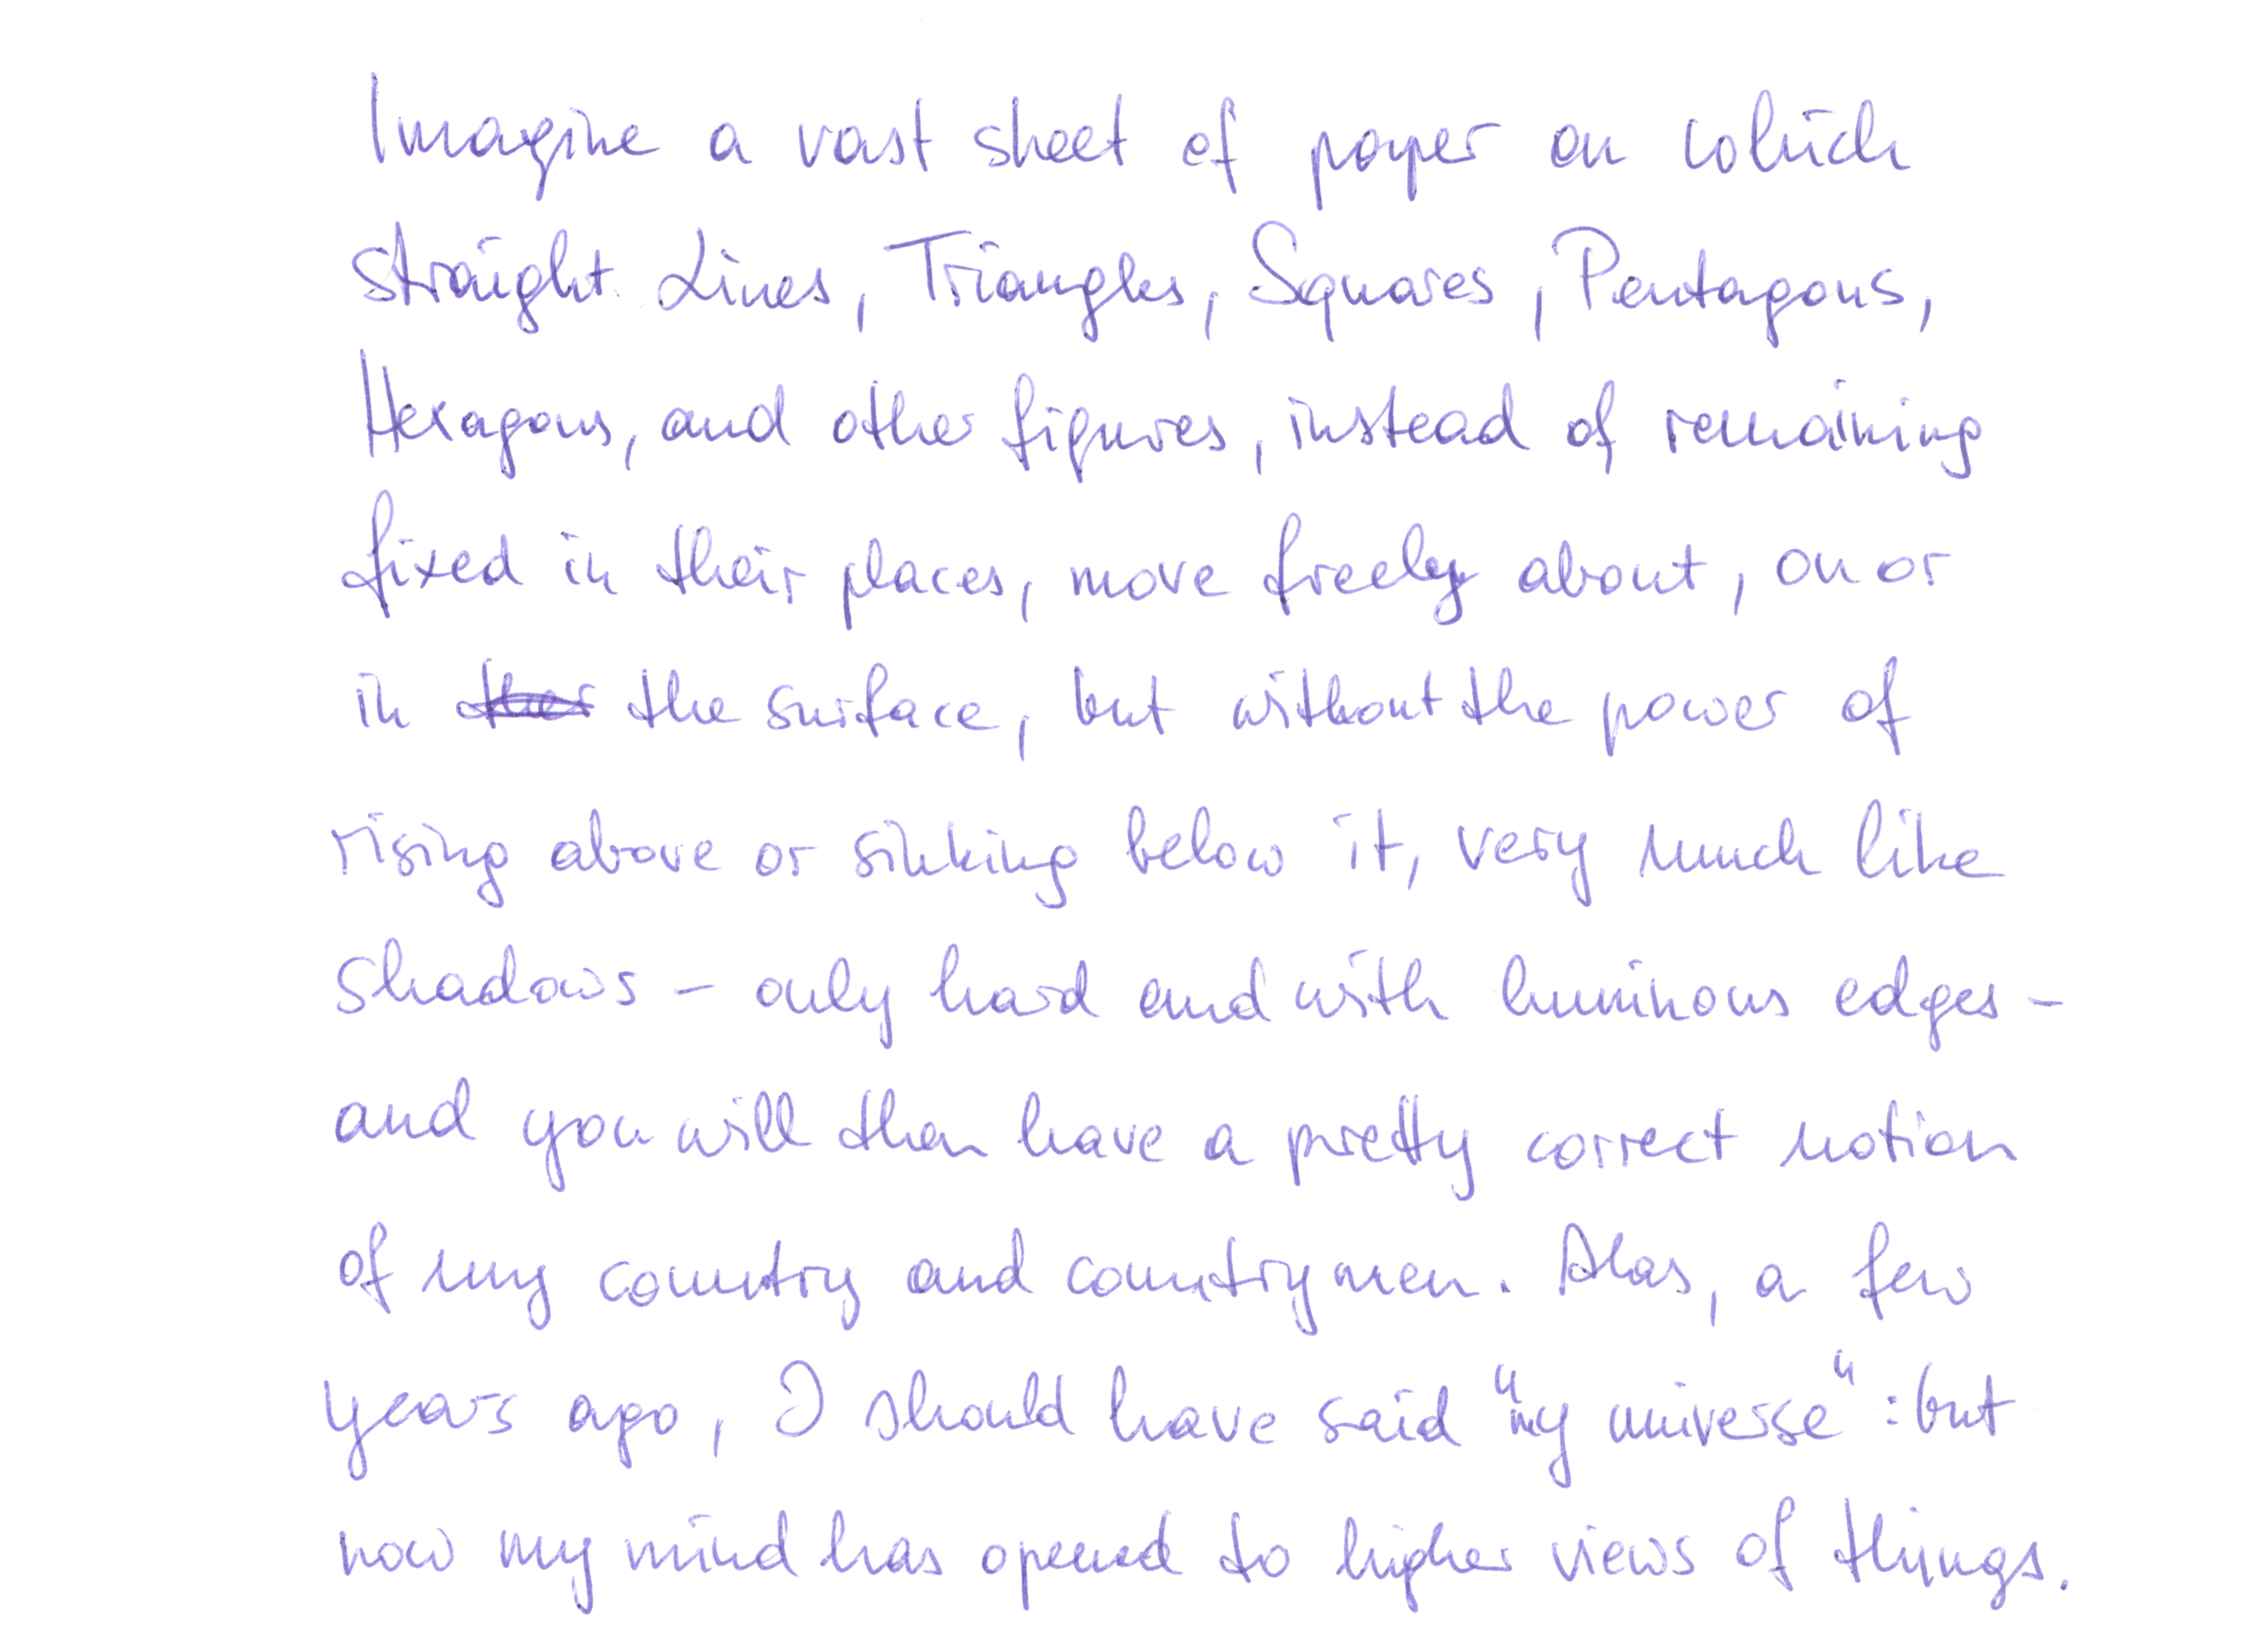 Imagine a vast sheet of paper on which
straight Lines, Triangles, Squares, Pentagons,
Hexagons, and other figures, instead of remaining
fixed in their places, move freely about, on or
in the surface, but without the power of
rising above or sinking below it, very much like
shadows – only hard and with luminous edges –
and you will then have a pretty correct notion
of my country and countrymen. Alas, a few
years ago, I should have said "my universe": but
now my mind has opened to higher views of things.